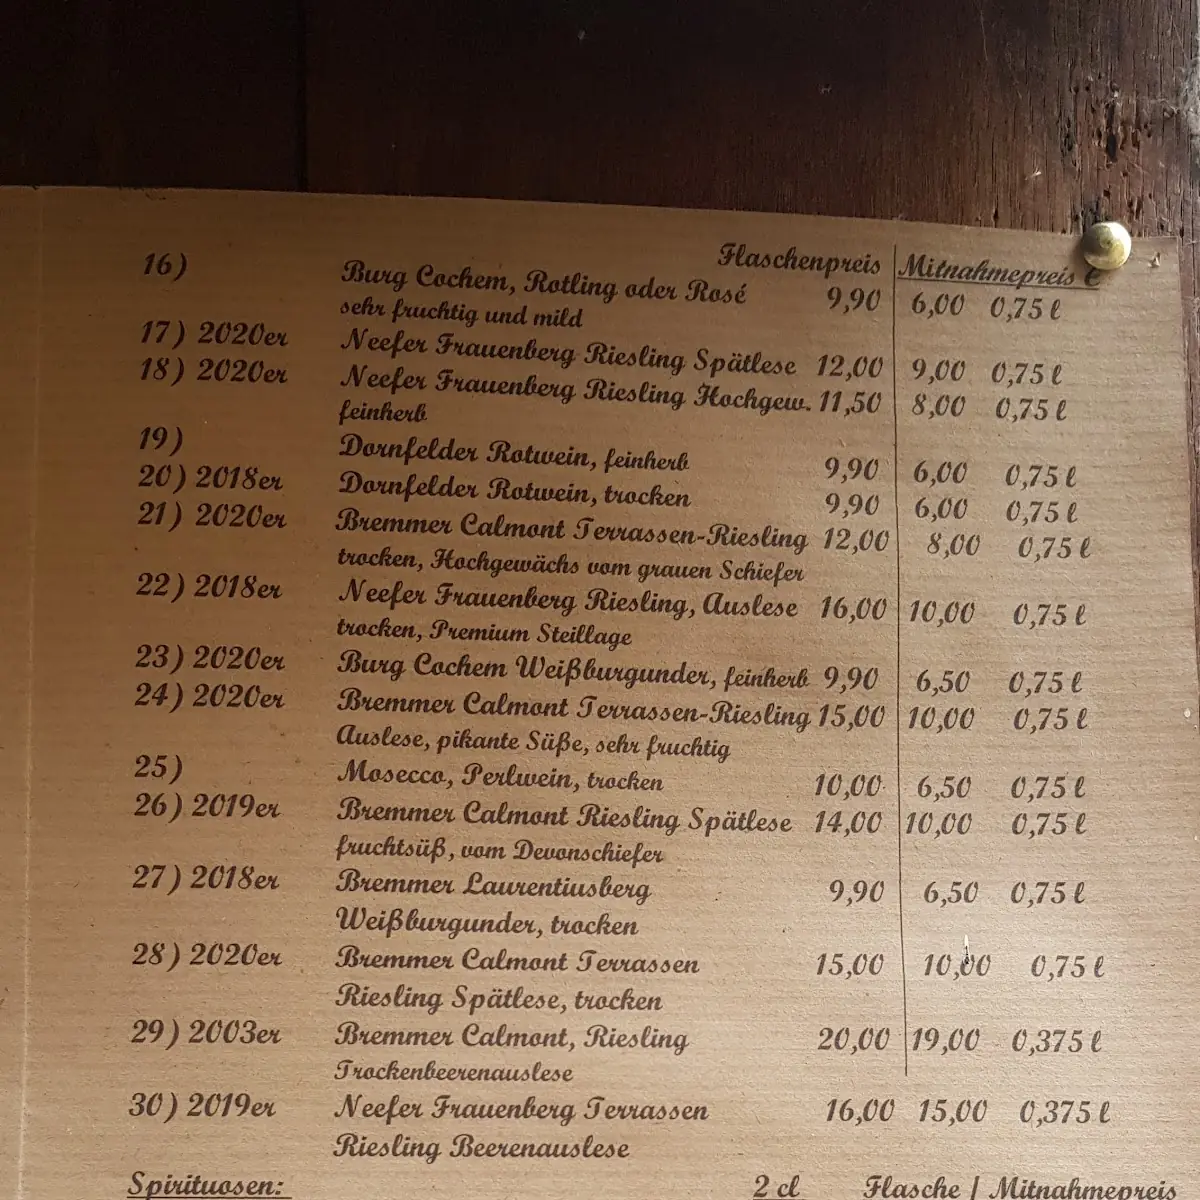 Flaschenpreis Mitnahmepreis €
16) Burg Cochem, Rotling oder Rosé 9,90 6,00 0,75 ℓ
sehr fruchtig und mild
17) 2020er Neefer Frauenberg Riesling Spätlese 12,00 9,00 0,75 ℓ
18) 2020er Neefer Frauenberg Riesling Hochgew. 11,50 8,00 0,75 ℓ
feinherb
19) Dornfelder Rotwein, feinherb 9,90 6,00 0,75 ℓ
20) 2018er Dornfelder Rotwein, trocken 9,90 6,00 0,75 ℓ
21) 2020er Bremmer Calmont Terrassen-Riesling 12,00 8,00 0,75 ℓ
trocken, Hochgewächs vom grauen Schiefer
22) 2018er Neefer Frauenberg Riesling, Auslese 16,00 10,00 0,75 ℓ
trocken, Premium Steillage
23) 2020er Burg Cochem Weißburgunder, feinherb 9,90 6,50 0,75 ℓ
24) 2020er Bremmer Calmont Terrassen-Riesling 15,00 10,00 0,75 ℓ
Auslese, pikante Süße, sehr fruchtig
25) Mosecco, Perlwein, trocken 10,00 6,50 0,75 ℓ
26) 2019er Bremmer Calmont Riesling Spätlese 14,00 10,00 0,75 ℓ
fruchtsüß, vom Devonschiefer
27) 2018er Bremmer Laurentiusberg 9,90 6,50 0,75 ℓ
Weißburgunder, trocken
28) 2020er Bremmer Calmont Terrassen 15,00 10,00 0,75 ℓ
Riesling Spätlese, trocken
29) 2003er Bremmer Calmont, Riesling 20,00 19,00 0,375 ℓ
Trockenbeerenauslese
30) 2019er Neefer Frauenberg Terrassen 16,00 15,00 0,375 ℓ
Riesling Beerenauslese
Spirituosen: 2 cl Flasche / Mitnahmepreis